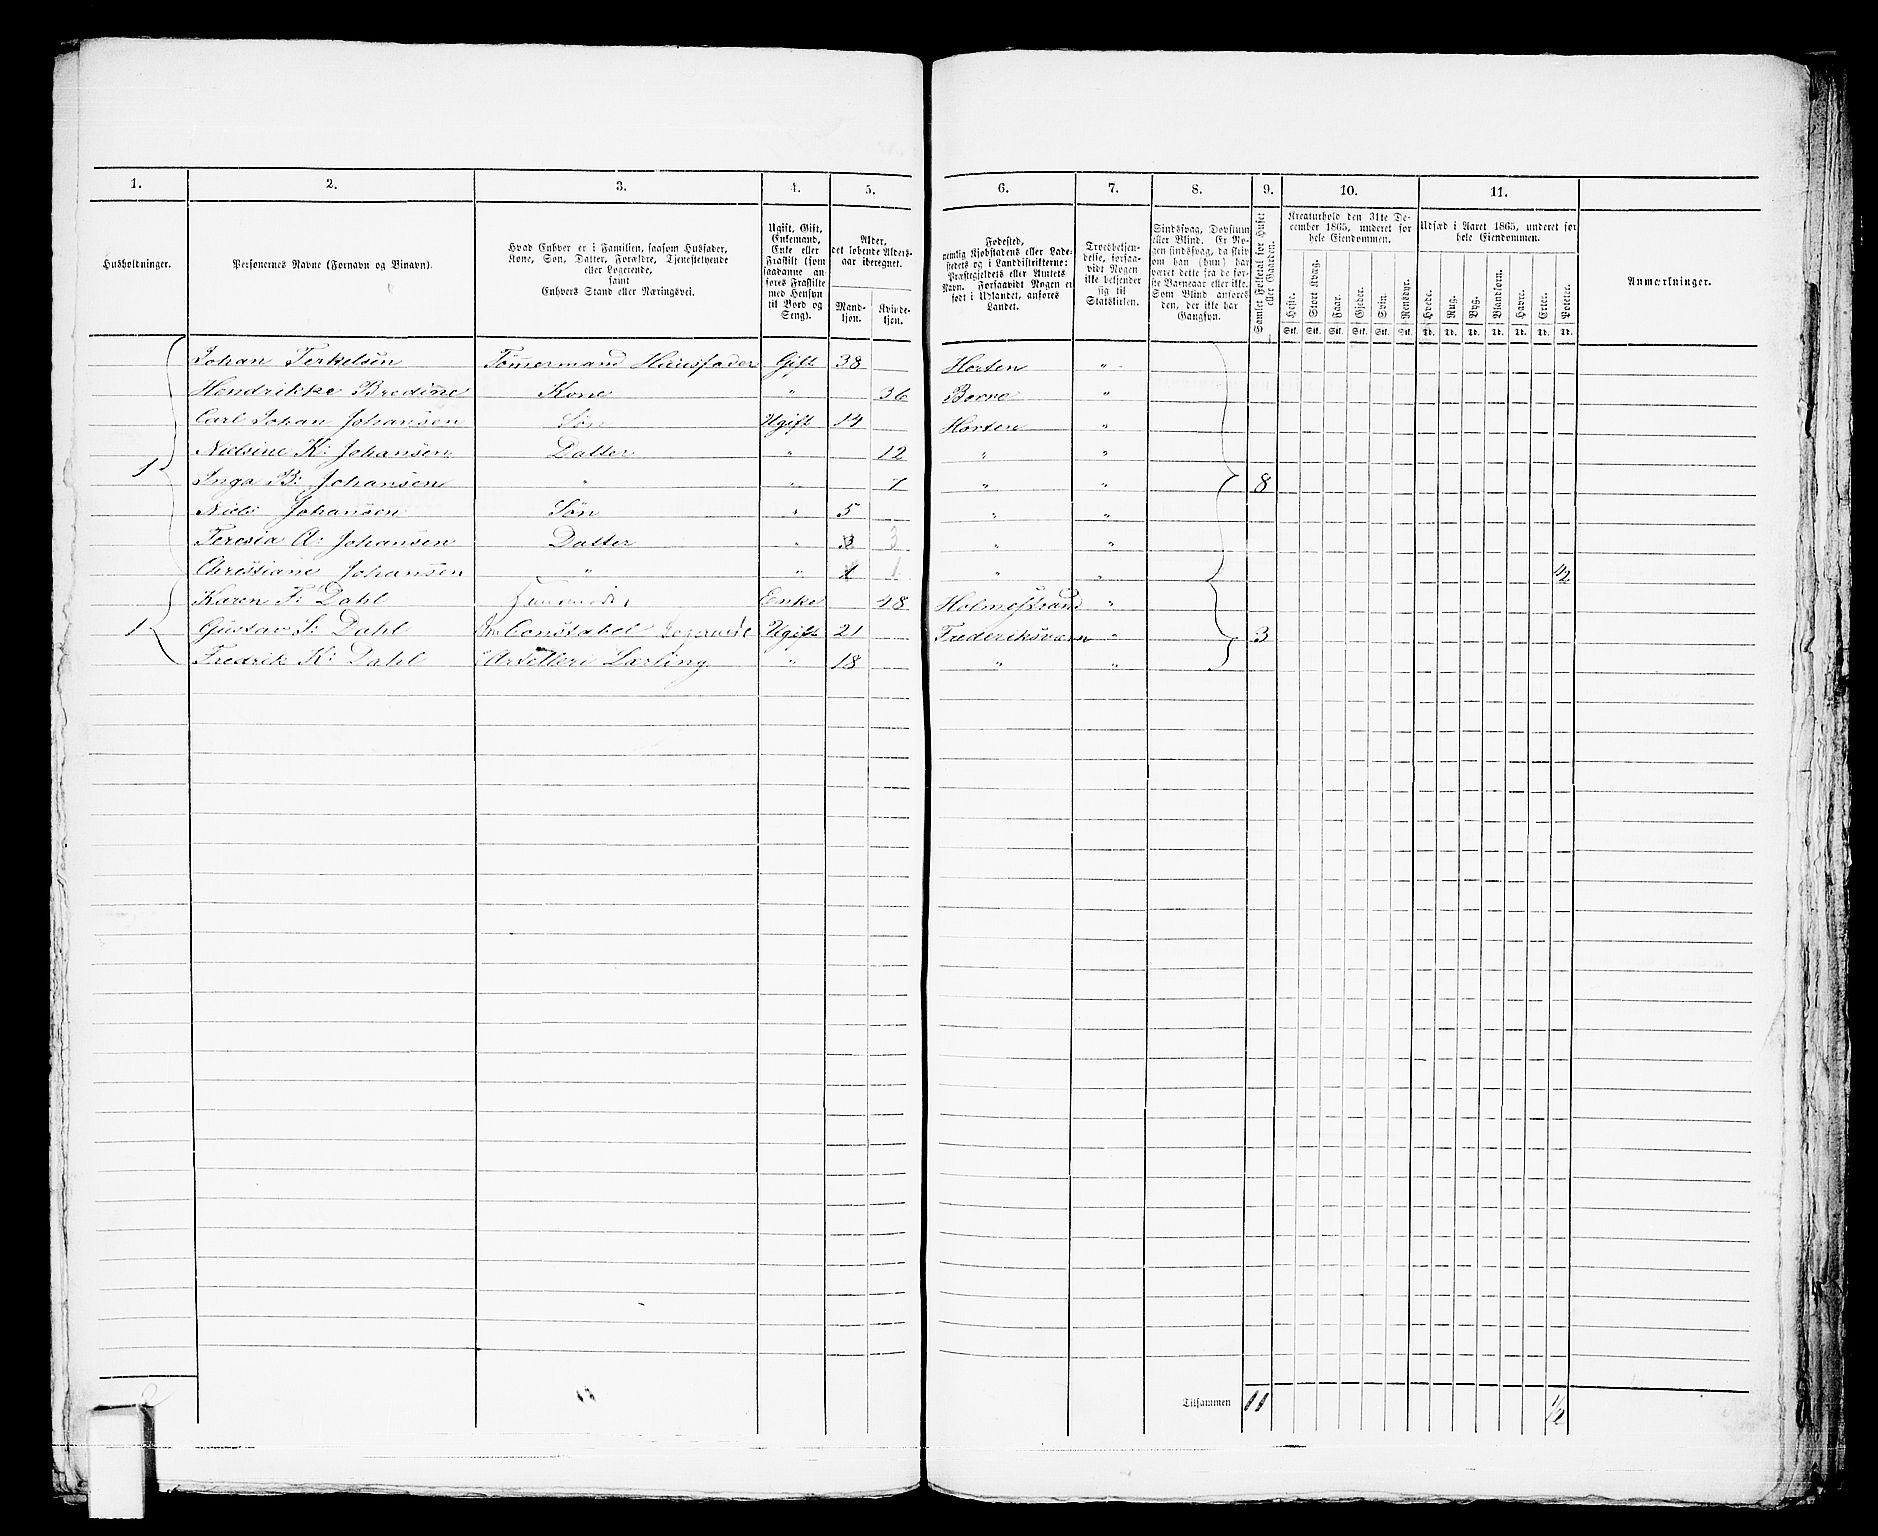 1. 2. 3. 4. 5. 6. 7. 8. 9. 10. 11.
Husholdninger.
Personernes Navne (Fornavn og Binavn).
Hvad Enhver er i Familien, saasom Husfader,
Kone, Søn, Datter, Forældre, Tjenestetyende
eller Logerende,
samt
Enhvers Stand eller Næringsvei.
Ugift, Gift,
Enkemand,
Enke eller
Fraskilt (som
saadanne an-
føres Fraskilte
med Hensyn
til Bord og
Seng).
Alder,
det løbende Alders-
aar iberegnet.
Mand-
kjøn.
Kvinde-
kjøn.
Fødested,
nemlig Kjøbstadens eller Lade-
stedets og i Landdistrikterne:
Præstegjeldets eller Amtets
Navn. Forsaavidt Nogen er
født i Udlandet, anføres
Landet.
Troesbekjen-
delse, forsaa-
vidt Nogen
ikke bekjender
sig til
Statskirken.
Sindssvag, Døvstum
eller Blind. Er No-
gen sindssvag, da skriv
om han (hun) har
været dette fra de før-
ste Barneaar eller ikke.
Som Blind anføres
den, der ikke har
Gangsyn.
Samlet Folketal for Huset
eller Gaarden.
Kreaturhold den 31te De-
cember 1865, underet for
hele Eiendommen.
Heste. Stort Kvæg. Faar. Gjeder. Svin. Rensdyr.
Stk. Stk. Stk. Stk. Stk. Stk.
Udsæd i Aaret 1865, underet for
hele Eiendommen.
Hvede. Rug. Byg. Blandkorn. Havre. Erter. Poteter.
Td. Td. Td. Td. Td. Td. Td.
Anmærkninger.
Johan Terkelsen Tømmermand Huusfader Gift 38 Horten "
Hendrikke Bredine Kone " 36 Borre "
Carl Johan Johansen Søn Ugift 14 Horten "
Nielsine K: Johansen Datter " 12 " "
1 Inga B: Johansen " " 7 " " 8
Niels Johansen Søn " 5 " "
Teresia A: Johansen Datter " 3 3 " "
Christiane Johansen " " 1 1 " " 1/2
Karen F: Dahl Enke 48 Holmestrand "
1 Gustav S: Dahl Constabel Ugift 21 Frederiksværn " 3
Fredrik K: Dahl Artelleri Lærling " 18 " "
2
Tilsammen 11 1/2